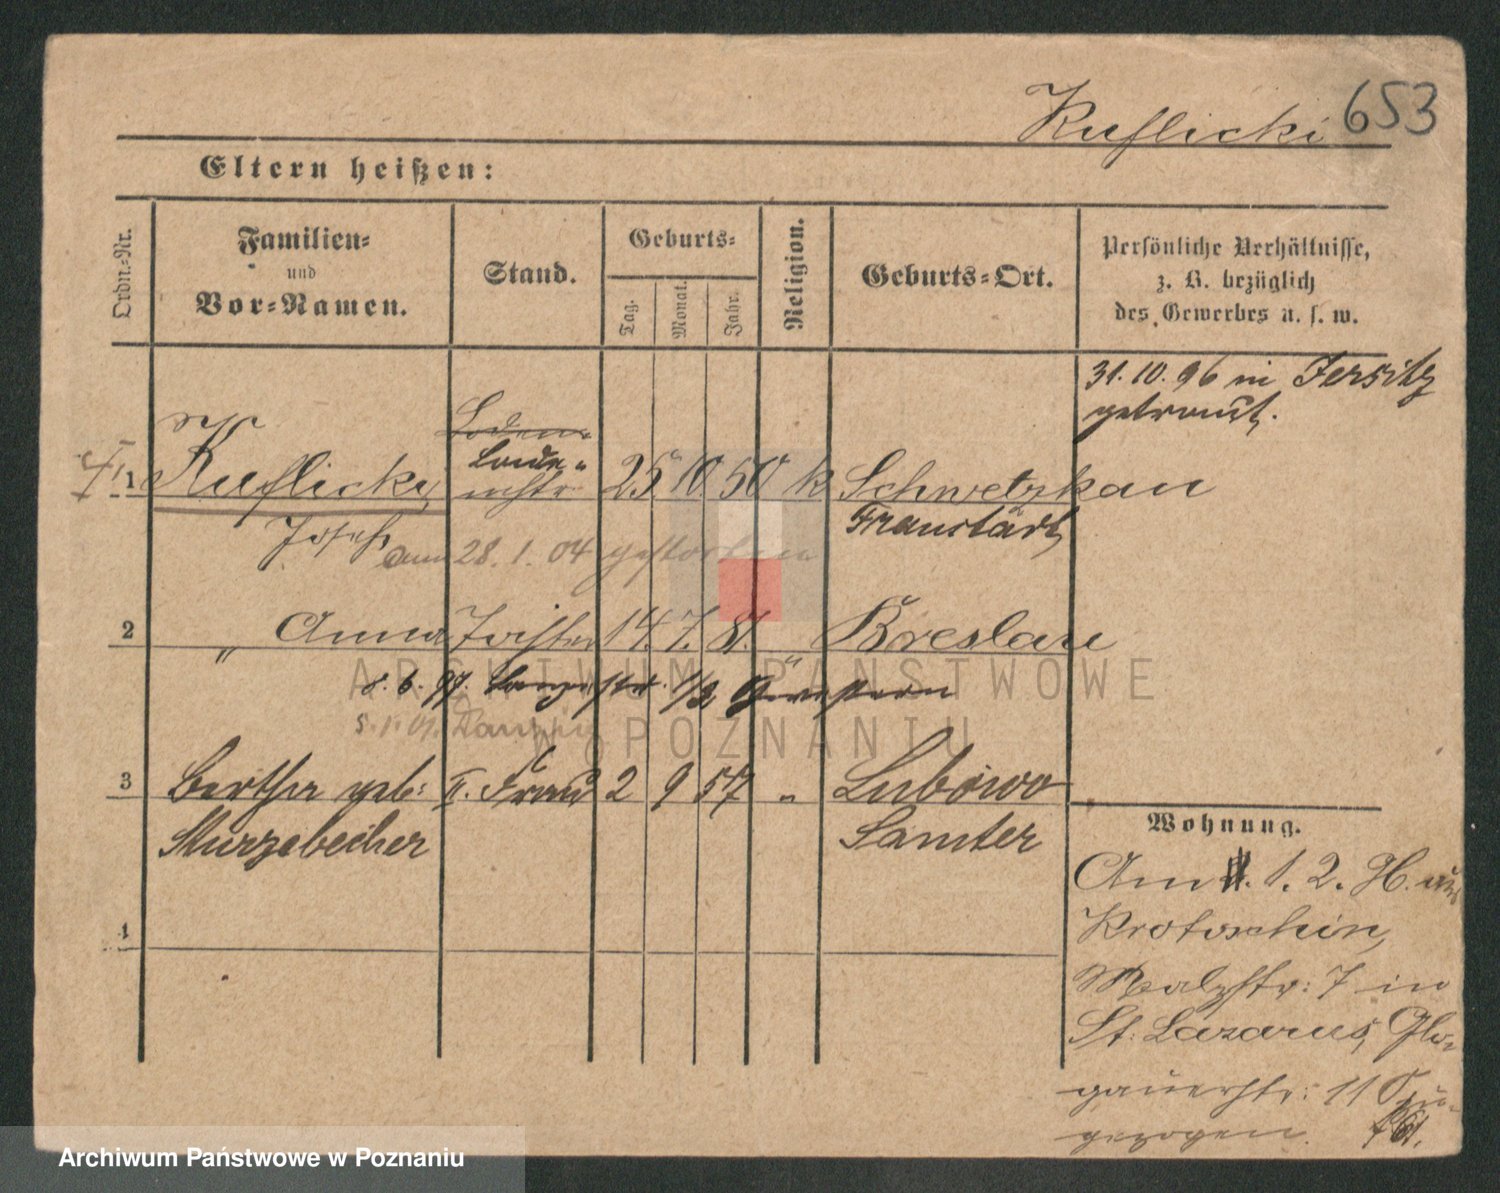 Kuflicki 653
Eltern heißen:
Ordn.-Nr.
Familien-
und
Vor-Namen.
Stand.
Geburts-
Tag.
Monat.
Jahr.
Religion.
Geburts-Ort.
Persönliche Verhältnisse,
z. B. bezüglich
des Gewerbes u. s. w.
31. 10. 96 in Jersitz
getraut.
1 Kuflicki, 25 10 50 k Schwetzkau
Fraustadt
Josef am 28. 1. 04 gestorben
2 " Anna Tochter 14. 7. 81. " Breslau
8. 6. 97.
3 Bertha geb: II. Frau 2 9 57 " Lubowo
Samter
4
Wohnung.
Am 1. 2. aus
Krotoschin,
in
St. Lazarus, Glo-
gauerstr: 11 zu-
gezogen.
ARCHIWUM PAŃSTWOWE
W POZNANIU
Archiwum Państwowe w Poznaniu